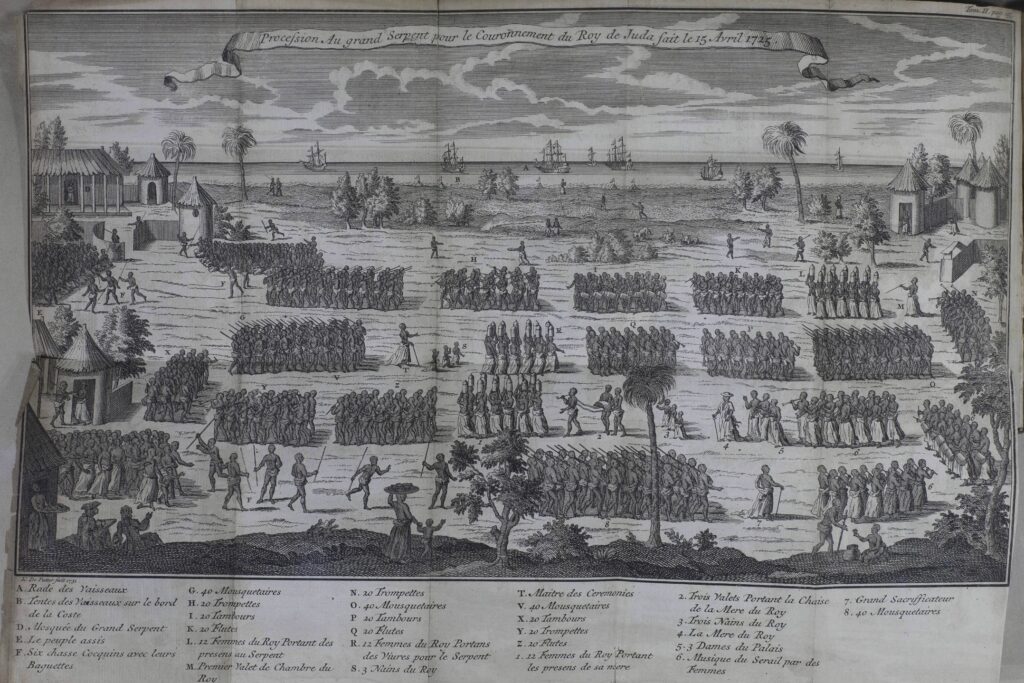 Tom. II. pag.
Procession Au grand Serpent pour le Couronnement du Roy de Juda fait le 15 Avril 1725
A. Rade des Vaisseaux
B. Tentes des Vaisseaux sur le bord
de la Coste
D. Mosquée du Grand Serpent
E. Le peuple assis
F. Six chasse Cocquins avec leurs
Baguettes
G. 40 Mousquetaires
H. 20 Trompettes
I. 20 Tambours
K. 20 Flutes
L. 12 Femmes du Roy Portant des
presens au Serpent
M. Premier Valet de Chambre du
Roy
N. 20 Trompettes
O. 40 Mousquetaires
P. 20 Tambours
Q. 20 Flutes
R. 12 Femmes du Roy Portans
des Viures pour le Serpent
S. 3 Nains du Roy
T. Maitre des Ceremonies
V. 40 Mousquetaires
X. 20 Tambours
Y. 20 Trompettes
Z. 20 Flutes
1. 12 Femmes du Roy Portant
les presens de sa mere
2. Trois Valets Portant la Chaise
de la Mere du Roy
3. Trois Nains du Roy
4. La Mere du Roy
5. 3 Dames du Palais
6. Musique du Serail par des
Femmes
7. Grand Sacrificateur
8. 40 Mousquetaires